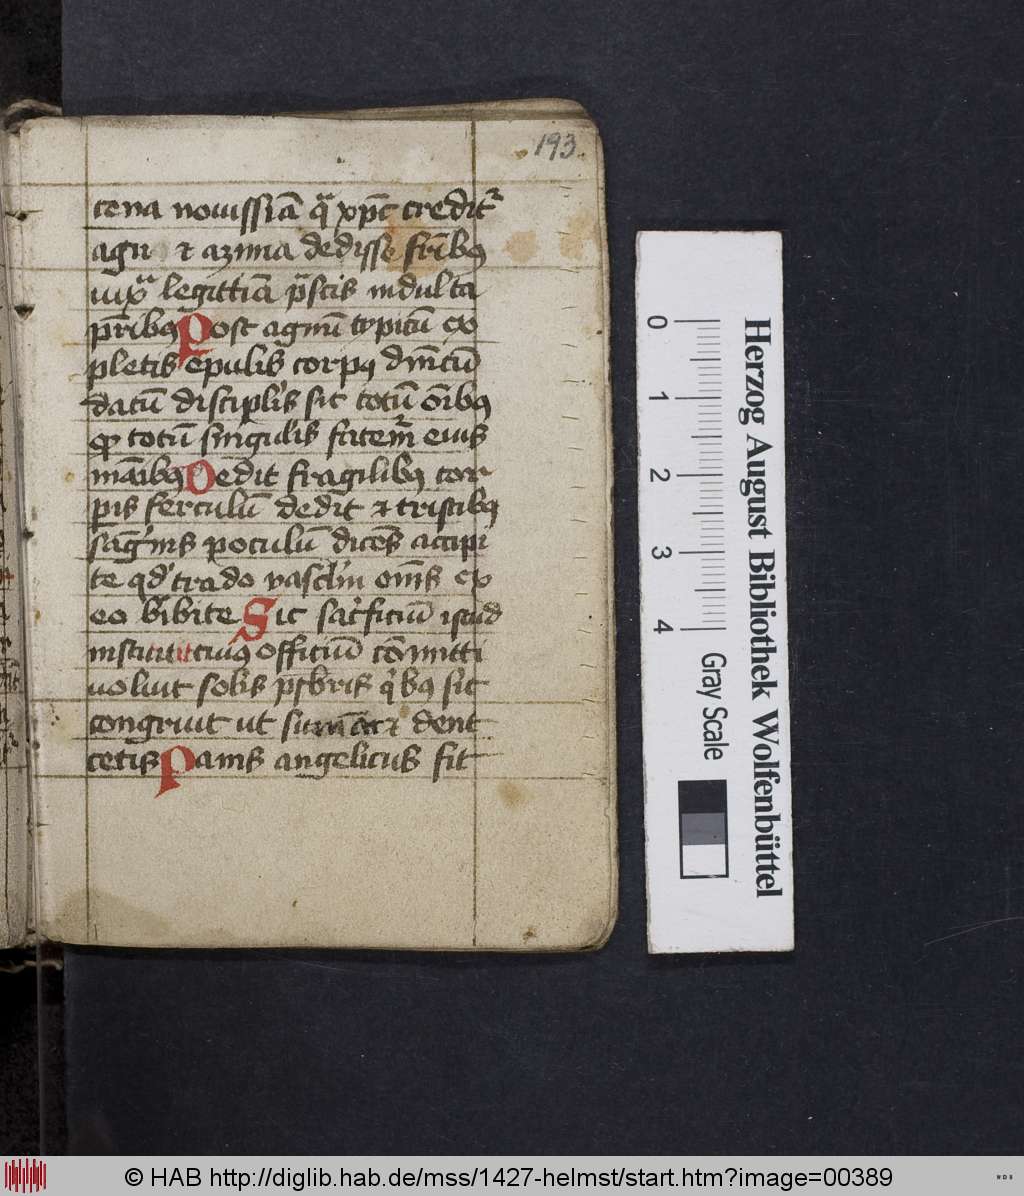 193
cena nouissīa q̄ xp̄c credit᷑
agn et azima dedisse fr̄ibꝫ
iuxᵃ legittīa p̄scis indulta
pr̄ibꝫ Post agnū typicū ex
pletis epulis corpꝫ dn̄icū
datū discipl̄is sic totū oībꝫ
qͦ totū singulis fatem᷑ eius
māibꝫ Dedit fragilibꝫ cor
ꝑis ferculū dedit et tristibꝫ
sāgⁱnis poculū dicēs accipi
te qd̓ trado vasclīn om̄s ex
eo bibite Sic sacⁱficiū istud
instituit cuiꝫ officiū cōmitti
uoluit sol̓is p̄sbris qⁱbꝫ sic
congruit ut sumāt et dent
cetis Panis angelicus fit
Herzog August Bibliothek Wolfenbüttel
0 1 2 3 4
Gray Scale
© HAB http://diglib.hab.de/mss/1427-helmst/start.htm?image=00389